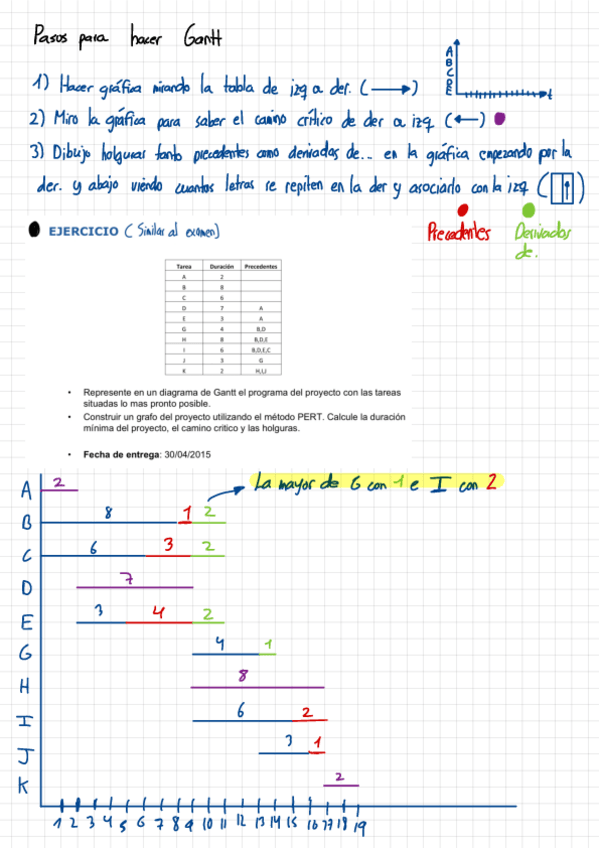 Pasos para hacer Gantt
A
B
C
D
E
t
1) Hacer gráfica mirando la tabla de izq a der. (→)
2) Miro la gráfica para saber el camino crítico de der a izq (←)
3) Dibujo holguras tanto precedentes como derivadas de... en la gráfica empezando por la
der. y abajo viendo cuantas letras se repiten en la der y asociarlo con la izq (↑)
Precedentes
Derivadas
de.
EJERCICIO (Similar al examen)
Tarea Duración Precedentes
A 2
B 8
C 6
D 7 A
E 3 A
G 4 B,D
H 8 B,D,E
I 6 B,D,E,C
J 3 G
K 2 H,I,J
• Represente en un diagrama de Gantt el programa del proyecto con las tareas
situadas lo mas pronto posible.
• Construir un grafo del proyecto utilizando el método PERT. Calcule la duración
mínima del proyecto, el camino critico y las holguras.
• Fecha de entrega: 30/04/2015
La mayor de G con 1 e I con 2
A 2
B 8 1 2
C 6 3 2
D 7
E 3 4 2
G 4 1
H 8
I 6 2
J 3 1
K 2
1 2 3 4 5 6 7 8 9 10 11 12 13 14 15 16 17 18 19